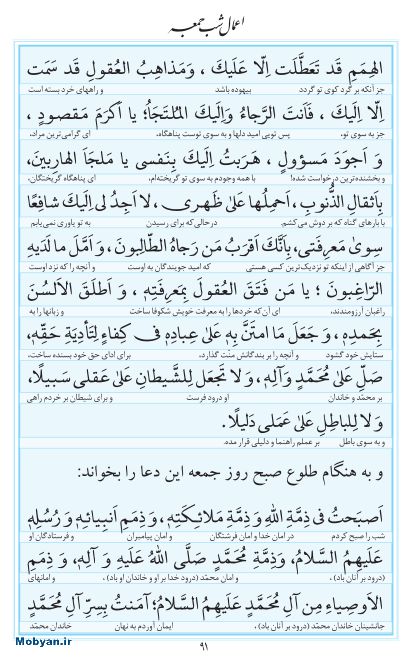 اعمال شب جمعه
الهِمَمِ قَد تَعَطَّلَت اِلّا عَلَيكَ ، وَمَذاهِبُ العُقولِ قَد سَمَت
جز آنکه بر گرد کوی تو گردد بیهوده باشد و راههای خرد بسته است
اِلّا اِلَيكَ ، فَاَنتَ الرَّجاءُ وَاِلَيكَ المُلتَجَأُ؛ يا اَكرَمَ مَقصودٍ ،
جز به سوی تو، پس تویی امید دلها و به سوی توست پناهگاه، ای گرامی‌ترین مراد،
وَ اَجوَدَ مَسؤولٍ ، هَرَبتُ اِلَيكَ بِنَفسی يا مَلجَاَ الهارِبينَ،
و بخشنده‌ترین درخواست شده! با همه وجودم به سوی تو گریخته‌ام، ای پناهگاه گریختگان،
بِاَثقالِ الذُّنوبِ ، اَحمِلُها عَلىٰ ظَهری ، لا اَجِدُ لی اِلَيكَ شافِعًا
با بارهای گناه که بر دوش می‌کشم. درحالی‌که برای رسیدن به تو یاوری نمی‌یابم
سِوىٰ مَعرِفَتی، بِاَنَّكَ اَقرَبُ مَن رَجاهُ الطّالِبونَ، وَ اَمَّلَ ما لَدَيهِ
جز آگاهی از اینکه تو نزدیک‌ترین کسی هستی که امید جویندگان به اوست و آنچه را که نزد اوست
الرّاغِبونَ ؛ يا مَن فَتَقَ العُقولَ بِمَعرِفَتِهٖ ، وَ اَطلَقَ الاَلسُنَ
راغبان آرزومندند، ای آن‌که خردها را به معرفت خویش شکوفا ساخت و زبانها را به
بِحَمدِهٖ، وَ جَعَلَ مَا امتَنَّ بِهٖ عَلىٰ عِبادِهٖ فی كِفاءٍ لِتَأديَةِ حَقِّهٖ،
ستایش خود گشود و آنچه را بر بندگانش منّت گذارد، برای ادای حق خود بسنده ساخت،
صَلِّ عَلىٰ مُحَمَّدٍ وَآلِهٖ، وَ لا تَجعَل لِلشَّيطانِ عَلىٰ عَقلی سَبيلًا،
بر محمّد و خاندان او درود فرست و برای شیطان بر خردم راهی
وَ لا لِلباطِلِ عَلىٰ عَمَلی دَليلًا.
و به سوی باطل بر عملم راهنما و دلیلی قرار مده.
و به هنگام طلوع صبح روز جمعه این دعا را بخواند:
اَصبَحتُ فی ذِمَّةِ اللهِ وَ ذِمَّةِ مَلائِكَتِهٖ، وَ ذِمَمِ اَنبيائِهٖ وَ رُسُلِهٖ
شب را صبح کردم در امان خدا و امان فرشتگان و امان پیامبران و فرستادگان او
عَلَيهِمُ السَّلامُ، وَذِمَّةِ مُحَمَّدٍ صَلَّى اللهُ عَلَيهِ وَ آلِهٖ، وَ ذِمَمِ
(درود بر آنان باد)، و امان محمّد (درود خدا بر او و خاندان او باد)، و امانهای
الاَوصياءِ مِن آلِ مُحَمَّدٍ عَلَيهِمُ السَّلامُ؛ آمَنتُ بِسِرِّ آلِ مُحَمَّدٍ
جانشینان خاندان محمّد (درود بر آنان باد)، ایمان آوردم به نهان خاندان محمّد
۹۱
Mobyan.ir